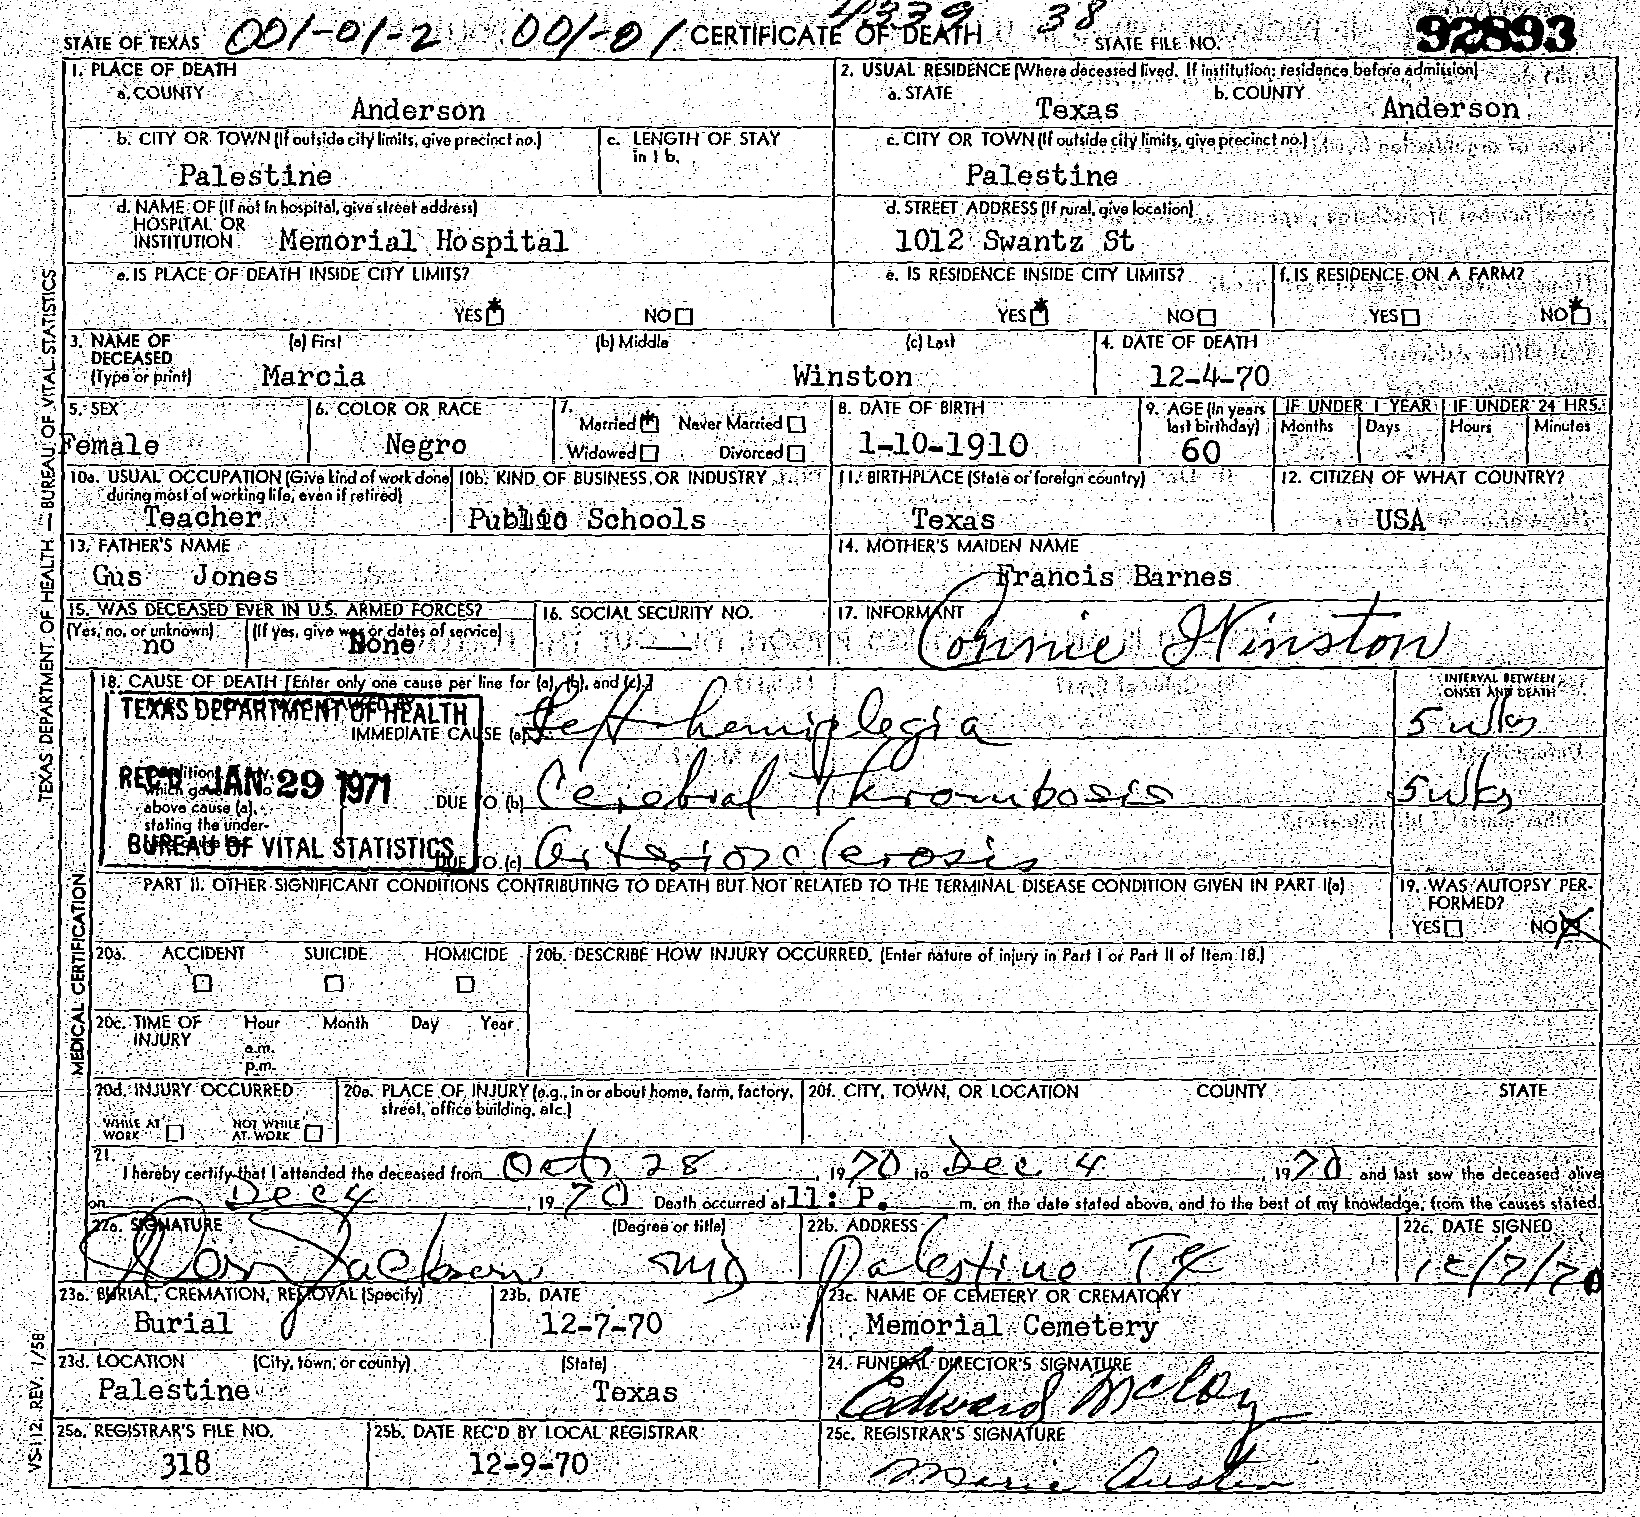 STATE OF TEXAS 001-01-2 001-01 CERTIFICATE OF DEATH 4339 38 STATE FILE NO. 92893
1. PLACE OF DEATH
a. COUNTY
Anderson
2. USUAL RESIDENCE (Where deceased lived. If institution: residence before admission)
a. STATE b. COUNTY
Texas Anderson
b. CITY OR TOWN (If outside city limits, give precinct no.)
Palestine
c. LENGTH OF STAY
in 1 b.
c. CITY OR TOWN (If outside city limits, give precinct no.)
Palestine
d. NAME OF (If not in hospital, give street address)
HOSPITAL OR
INSTITUTION Memorial Hospital
d. STREET ADDRESS (If rural, give location)
1012 Swantz St
e. IS PLACE OF DEATH INSIDE CITY LIMITS?
YES NO
e. IS RESIDENCE INSIDE CITY LIMITS?
YES NO
f. IS RESIDENCE ON A FARM?
YES NO
3. NAME OF (a) First (b) Middle (c) Last
DECEASED
(Type or print) Marcia Winston
4. DATE OF DEATH
12-4-70
5. SEX
Female
6. COLOR OR RACE
Negro
7.
Married Never Married
Widowed Divorced
8. DATE OF BIRTH
1-10-1910
9. AGE (In years
last birthday)
60
IF UNDER 1 YEAR IF UNDER 24 HRS.
Months Days Hours Minutes
10a. USUAL OCCUPATION (Give kind of work done
during most of working life, even if retired)
Teacher
10b. KIND OF BUSINESS OR INDUSTRY
Public Schools
11. BIRTHPLACE (State or foreign country)
Texas
12. CITIZEN OF WHAT COUNTRY?
USA
13. FATHER'S NAME
Gus Jones
14. MOTHER'S MAIDEN NAME
Francis Barnes
15. WAS DECEASED EVER IN U.S. ARMED FORCES?
(Yes, no, or unknown) (If yes, give war or dates of service)
no None
16. SOCIAL SECURITY NO.
—
17. INFORMANT
Connie Winston
18. CAUSE OF DEATH [Enter only one cause per line for (a), (b), and (c).]
INTERVAL BETWEEN
ONSET AND DEATH
TEXAS DEPARTMENT OF HEALTH
IMMEDIATE CAUSE (a) Left hemiplegia 5 wks
REC'D JAN 29 1971
which
above cause (a),
stating the under-
DUE TO (b) Cerebral Thrombosis 5 wks
BUREAU OF VITAL STATISTICS
DUE TO (c) Arteriosclerosis
PART II. OTHER SIGNIFICANT CONDITIONS CONTRIBUTING TO DEATH BUT NOT RELATED TO THE TERMINAL DISEASE CONDITION GIVEN IN PART I(a)
19. WAS AUTOPSY PER-
FORMED?
YES NO
20a. ACCIDENT SUICIDE HOMICIDE
20b. DESCRIBE HOW INJURY OCCURRED. (Enter nature of injury in Part I or Part II of Item 18.)
20c. TIME OF Hour Month Day Year
INJURY
a.m.
p.m.
20d. INJURY OCCURRED
WHILE AT
WORK
NOT WHILE
AT WORK
20e. PLACE OF INJURY (e.g., in or about home, farm, factory,
street, office building, etc.)
20f. CITY, TOWN, OR LOCATION COUNTY STATE
21.
I hereby certify that I attended the deceased from Oct 28, 1970 to Dec 4, 1970 and last saw the deceased alive
on Dec 4, 1970 Death occurred at 11: P. m. on the date stated above, and to the best of my knowledge, from the causes stated.
22a. SIGNATURE (Degree or title)
Jackson MD
22b. ADDRESS
Palestine TX
22c. DATE SIGNED
12/7/70
23a. BURIAL, CREMATION, REMOVAL (Specify)
Burial
23b. DATE
12-7-70
23c. NAME OF CEMETERY OR CREMATORY
Memorial Cemetery
23d. LOCATION (City, town, or county) (State)
Palestine Texas
24. FUNERAL DIRECTOR'S SIGNATURE
Edward McCoy
25a. REGISTRAR'S FILE NO.
318
25b. DATE REC'D BY LOCAL REGISTRAR
12-9-70
25c. REGISTRAR'S SIGNATURE
Marie Austin
TEXAS DEPARTMENT OF HEALTH — BUREAU OF VITAL STATISTICS
MEDICAL CERTIFICATION
VS-112 REV. 1/58